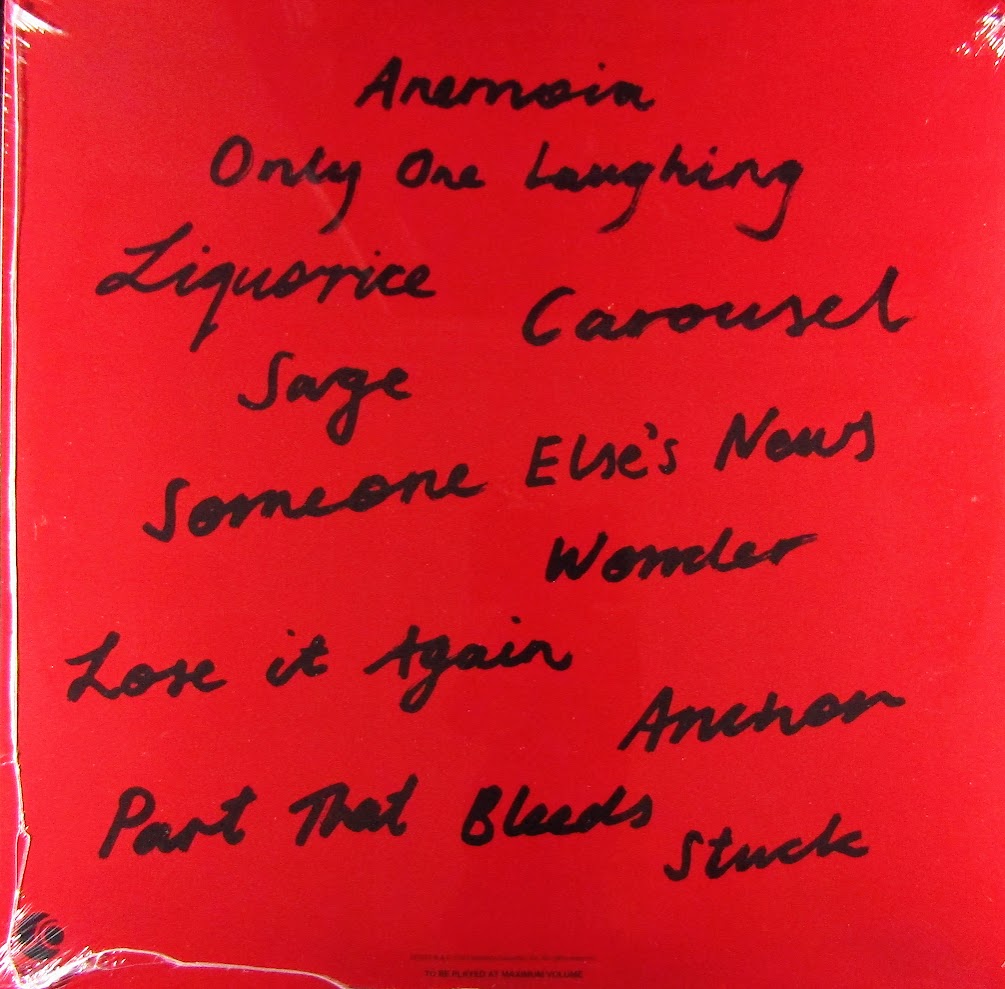 Anemoia
Only One Laughing
Liquorice
Carousel
Sage
Someone Else's News
Wonder
Lose it Again
Anchor
Part That Bleeds
Stuck
TO BE PLAYED AT MAXIMUM VOLUME